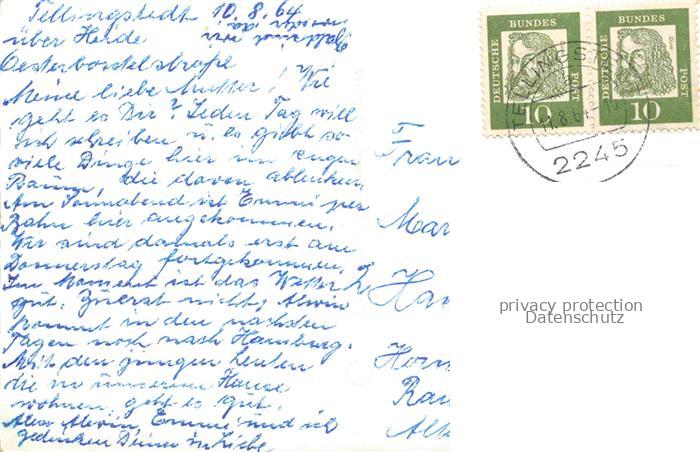 Tellingstedt 10.8.64
über Heide
Oesterborstelstraße
Meine liebe Mutter! Wie
geht es Dir? Jeden Tag will
ich schreiben u. es giebt so
viele Dinge hier im engen
Raum, die davon ablenken.
Am Sonnabend ist Emmi per
Bahn hier angekommen.
Wir sind damals erst am
Donnerstag fortgekommen,
Im Moment ist das Wetter
gut. Zuerst nicht. Alwin
kommt in den nächsten
Tagen noch nach Hamburg.
Mit den jungen Leuten
die in unserem Hause
wohnen, geht es gut.
Alwin, Emmi und ich
gedenken Deiner in Liebe
Frau
Mar
Ha
Horn
Ra
Alt
DEUTSCHE BUNDES POST
10
DEUTSCHE BUNDES POST
10
TELLINGS
2245
privacy protection
Datenschutz